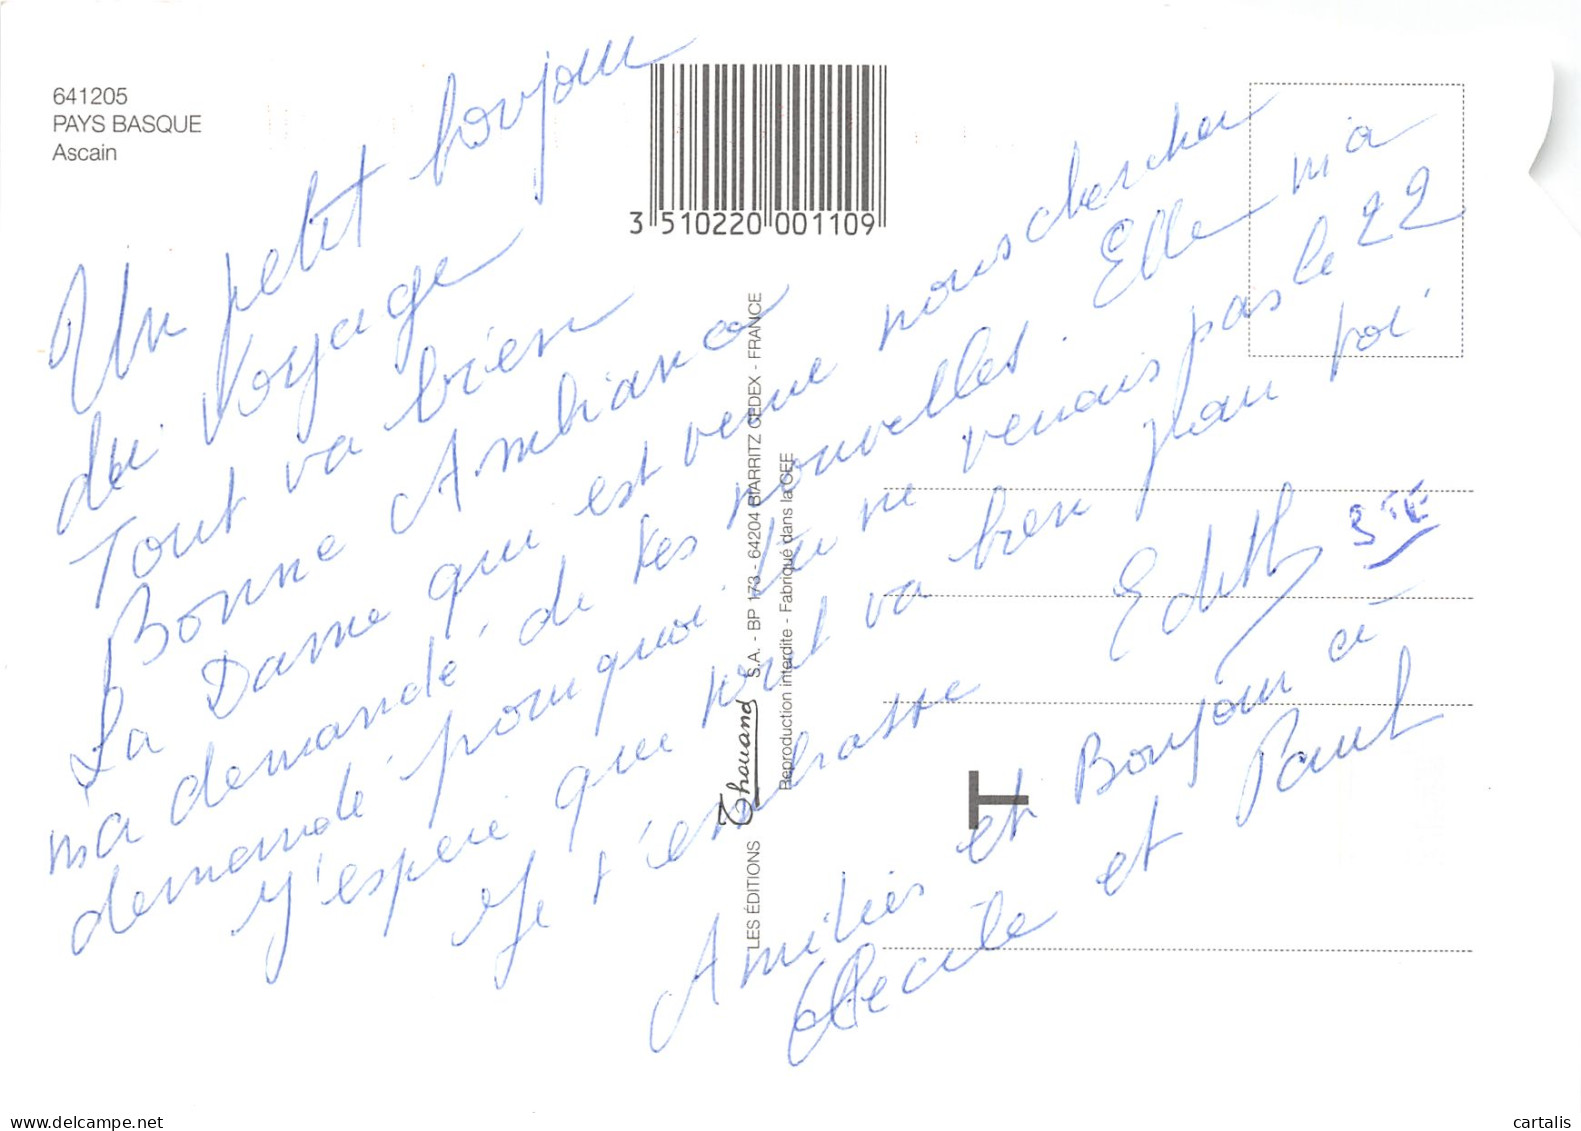 641205
PAYS BASQUE
Ascain
3 510220 001109
Un petit boujour
du Voyage
Tout va bien
Bonne Ambiance
La Dame qui est venue nous chercher
m'a demandé de tes nouvelles. Elle m'a
demandé pourquoi tu ne venais pas le 22
J'espère que tout va bien pour toi
Je t'embrasse
Edith
BTE
Amitiés et Bonjour à
Cécile et Paul
LES ÉDITIONS Thouand S.A. - BP 173 - 64204 BIARRITZ CEDEX - FRANCE
Reproduction interdite - Fabriqué dans la CEE
T
www.delcampe.net
cartalis